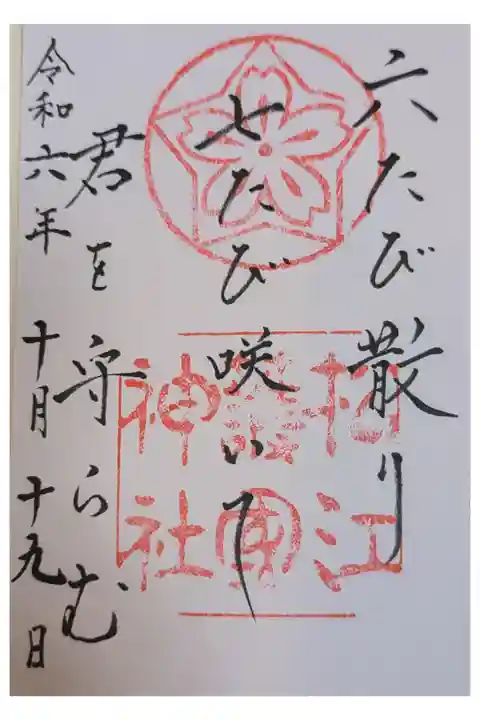 六たび散り
七たび咲いて
君を守らむ
令和六年十月十九日
江
神社